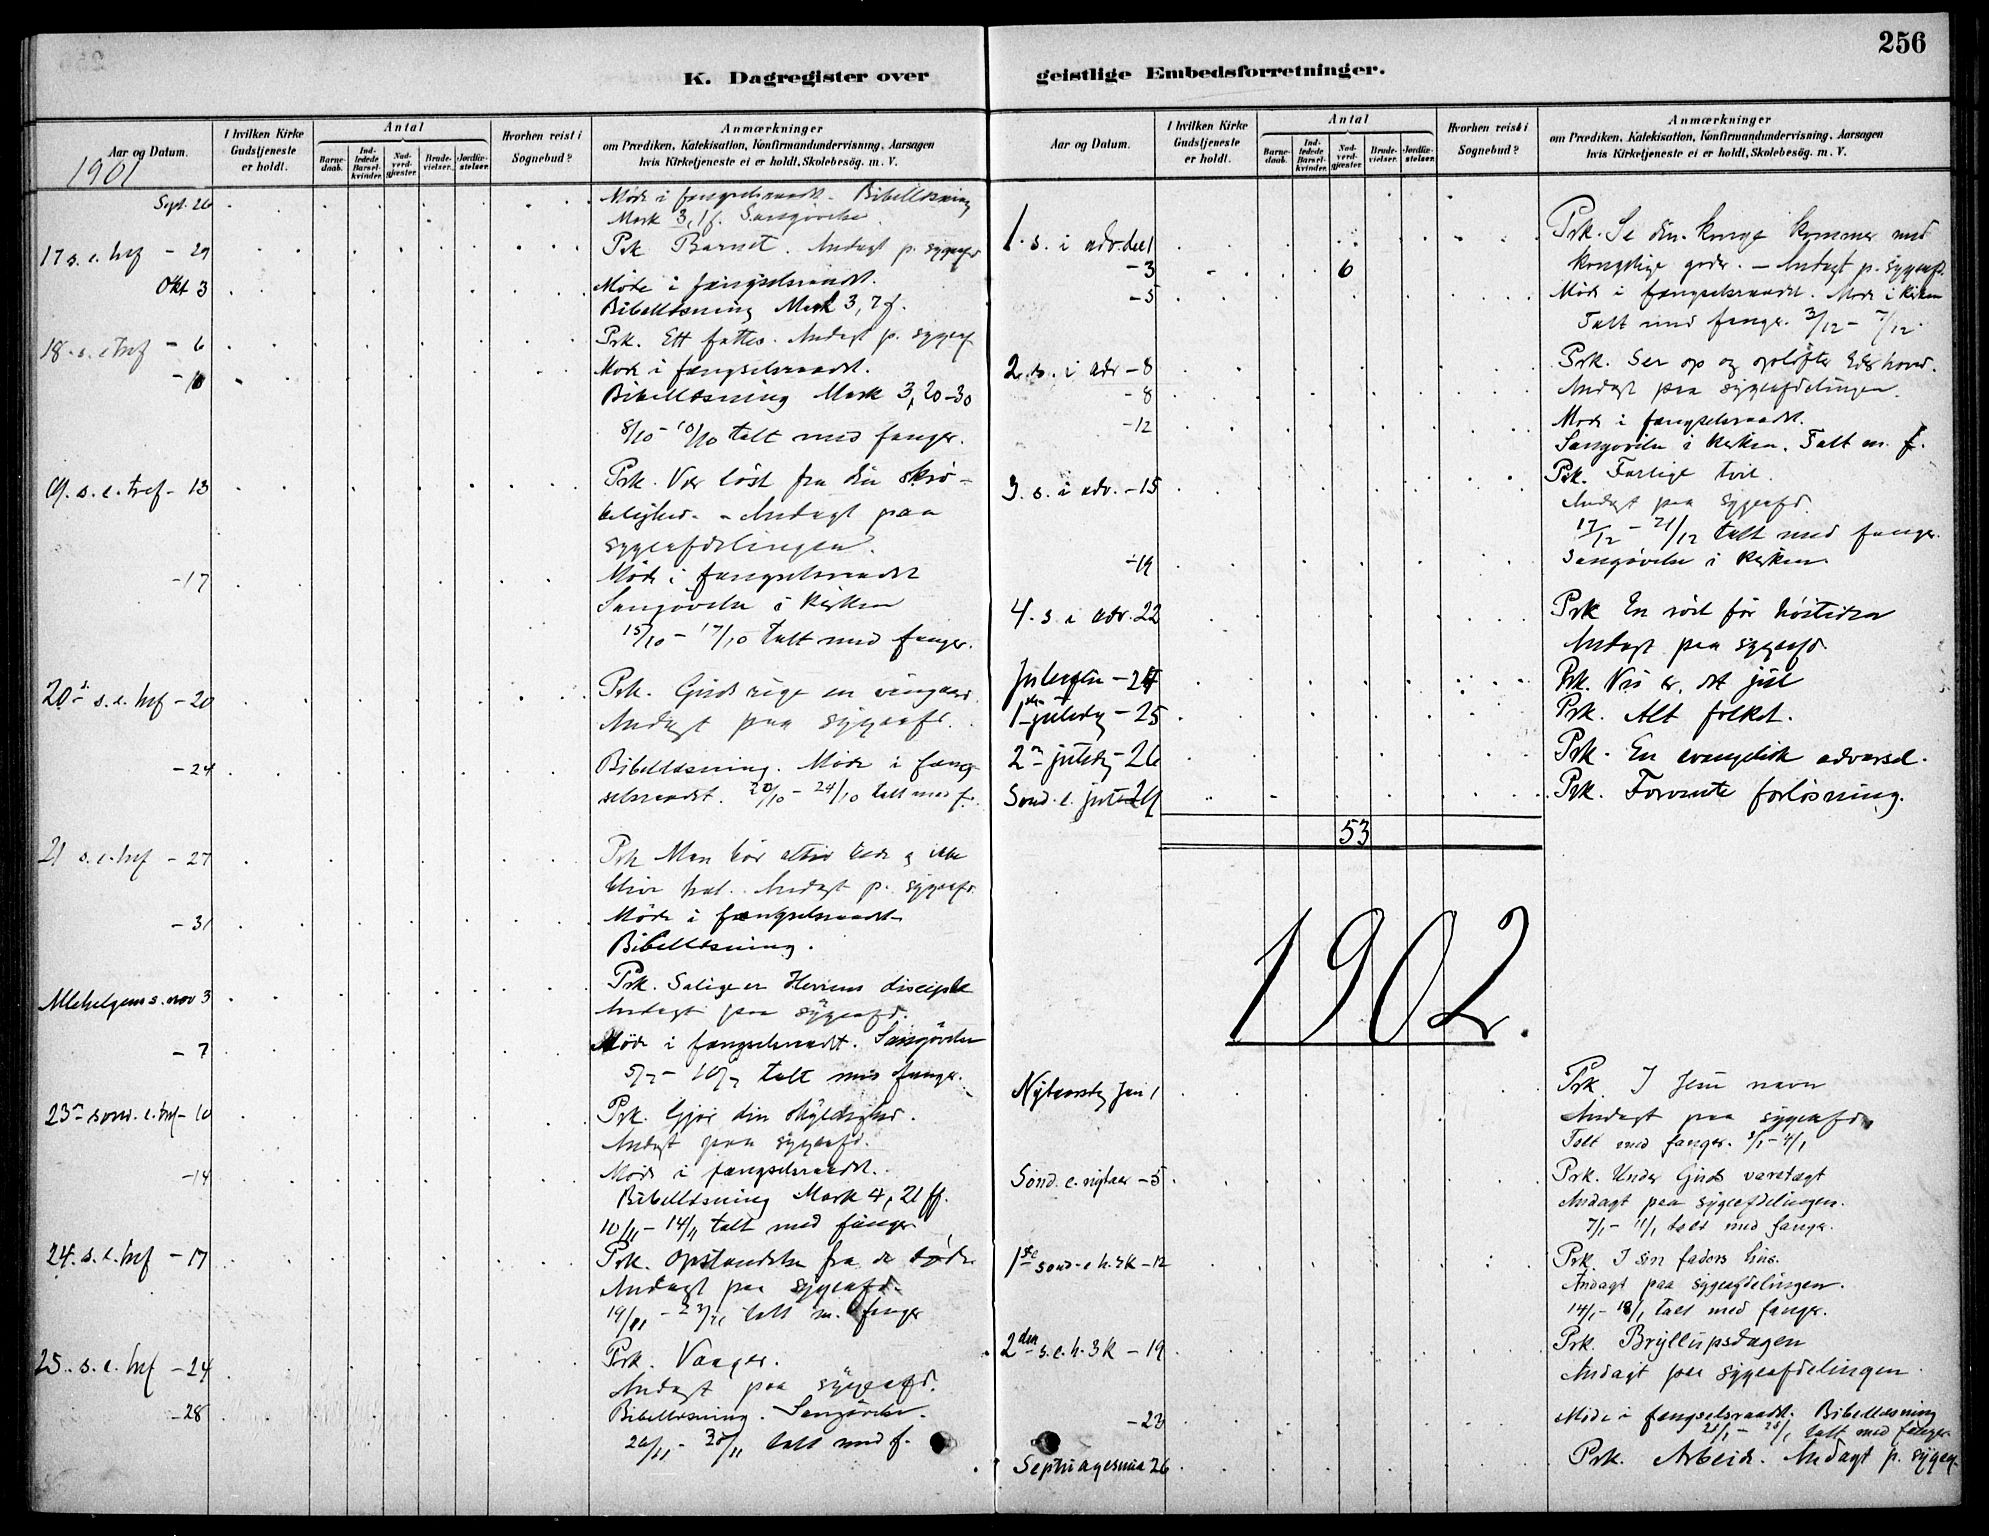 256
K. Dagregister over geistlige Embedsforretninger.
Aar og Datum.
I hvilken Kirke Gudstjeneste er holdt.
Antal
Barnedaab.
Indledede Barselkvinder.
Nadverdgjæster.
Brudevielser.
Jordfæstelser.
Hvorhen reist i Sognebud?
Anmærkninger
om Prædiken, Katekisation, Konfirmandundervisning, Aarsagen
hvis Kirketjeneste ei er holdt, Skolebesøg. m. V.
1901
Sept. 26 Møde i fængselsraadet. Bibellæsning
Mark 3, 1 f. Sangøvelse
17 s. e. tref - 29 Prk Barnet. Andagt p. sygeafd
Okt 3 Møde i fængselsraadet.
Bibellæsning Mark 3, 7 f.
18. s. e. tref - 6 Prk. Ett fattes. Andagt p. sygeaf
- 10 Møde i fængselsraadet.
Bibellæsning Mark 3, 20-30
8/10 - 10/10 talt med fanger.
19. s. e. tref - 13 Prk. Vær løst fra din skrø-
belighed. - Andagt paa
sygeafdelingen.
- 17 Møde i fængselsraadet
Sangøvelse i kirken
15/10 - 17/10 talt med fanger.
20 s. e. tref - 20 Prk. Guds rige en vingaard
Andagt paa sygeafd.
- 24 Bibellæsning. Møde i fæng-
selsraadet. 20/10 - 24/10 talt med f.
21 s. e. tref - 27 Prk Man bør altid bede og ikke
blive træt. Andagt p. sygeafd.
- 31 Møde i fængselsraadet
Bibellæsning.
Allehelgens s. nov 3 Prk. Salige er Herrens disciple
Andagt paa sygeafd.
- 7 Møde i fængselsraadet. Sangøvelse
talt med fanger.
23 sond. e. tref - 10 Prk. Gjør din skyldighed.
Andagt paa sygeafd.
- 14 Møde i fængselsraadet.
Bibellæsning Mark 4, 21 ff.
10/11 - 14/11 talt med fanger
24. s. e. tref - 17 Prk. Opstandelse fra de døde
Andagt paa sygeafd.
19/11 - 23/11 talt m. fanger
25. s. e. tref - 24 Prk. Vaager.
Andagt paa sygeafd.
- 28 Bibellæsning. Sangøvelse.
26/11 - 30/11 talt med f.
Aar og Datum.
I hvilken Kirke Gudstjeneste er holdt.
Antal
Barnedaab.
Indledede Barselkvinder.
Nadverdgjæster.
Brudevielser.
Jordfæstelser.
Hvorhen reist i Sognebud?
Anmærkninger
om Prædiken, Katekisation, Konfirmandundervisning, Aarsagen
hvis Kirketjeneste ei er holdt, Skolebesøg. m. V.
1. s. i adv. dec 1 Prk. Se din konge kommer med
kongelige gaver. - Andagt p. sygeafd.
- 3 6
- 5 Møde i fængselsraadet. Møde i kirken
Talt med fanger. 3/12 - 7/12.
2. s. i adv - 8 Prk. Ser op og opløfter Eders hoved.
- 8 Andagt paa sygeafdelingen.
- 12 Møde i fængselsraadet.
Sangøvelse i kirken. Talt m. f.
3. s. i adv. - 15 Prk. Farlige tvil.
Andagt paa sygeafd.
17/12 - 21/12 talt med fanger.
- 19 Sangøvelse i kirken.
4. s. i adv. 22 Prk En røst for høitiden
Andagt paa sygeafd.
Juleaften - 24 Prk. Nu er det jul
1 juledag - 25 Prk. Alt folket.
2 juledag - 26 Prk. En evangelisk advarsel.
Sond. e. jul - 29 Prk. Forvente forløsning.
53
1902.
Nytaarsdag Jan 1 Prk. I Jesu navn
Andagt paa sygeafd.
Talt med fanger. 3/1 - 4/1
Sond. e. nytaar - 5 Prk. Under Guds varetægt
Andagt paa sygeafdelingen.
7/1 - 11/1 talt med fanger.
1ste sond. e. h. 3 k - 12 Prk. I sin faders hus.
Andagt paa sygeafdelingen.
14/1 - 18/1 talt med fanger.
2den s. e. h. 3 k - 19 Prk. Bryllupsdagen
Andagt paa sygeafdelingen
- 23 Møde i fængselsraadet. Bibellæsning
21/1 - 25/1 talt med fanger
Septuagesima 26 Prk. Arbeid. Andagt p. sygeaf-